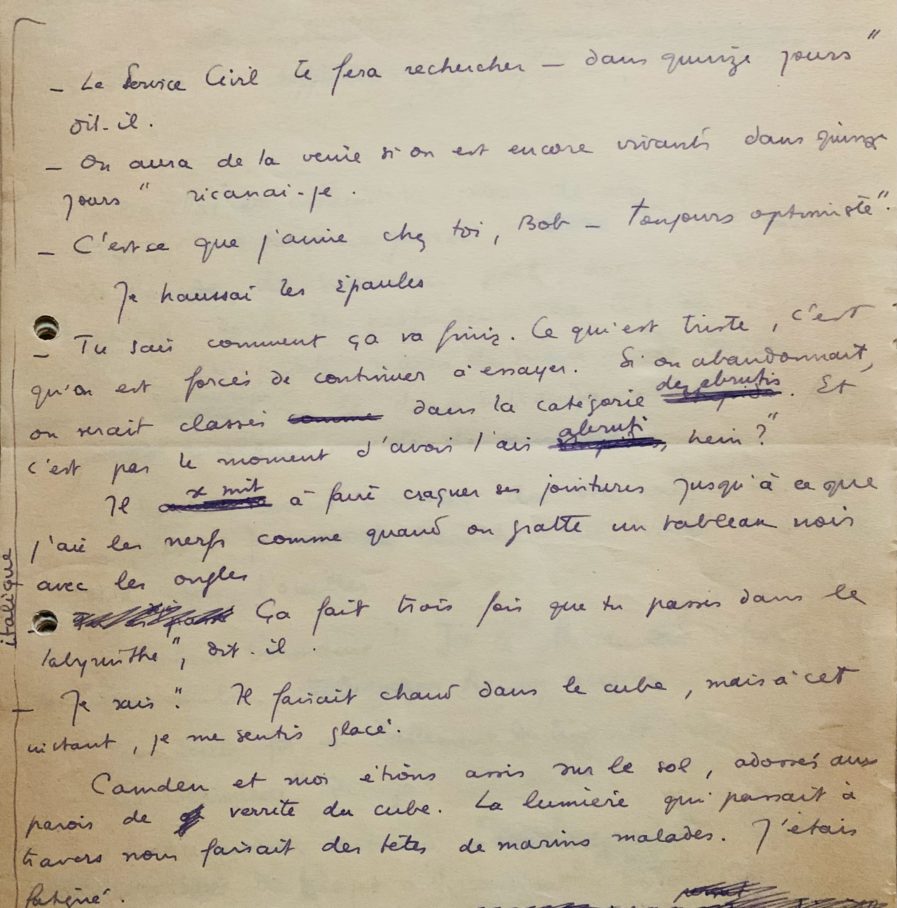 - Le Service Civil te fera rechercher - dans quinze jours"
dit-il.
- On aura de la veine si on est encore vivants dans quinze
jours" ricanai-je.
- C'est ce que j'aime chez toi, Bob - toujours optimiste".
Je haussai les épaules
- Tu sais comment ça va finir. Ce qui est triste, c'est
qu'on est forcés de continuer à essayer. Si on abandonnait,
on serait classés comme dans la catégorie des abrutis. Et
c'est pas le moment d'avoir l'air abruti, hein?"
Il se mit à faire craquer ses jointures jusqu'à ce que
j'aie les nerfs comme quand on gratte un tableau noir
avec les ongles
- Ça fait trois fois que tu passes dans le
labyrinthe", dit-il.
- Je sais". Il faisait chaud dans le cube, mais à cet
instant, je me sentis glacé.
Camden et moi étions assis sur le sol, adossés aux
parois de verrite du cube. La lumière qui passait à
travers nous faisait des têtes de marins malades. J'étais
fatigué.
italique